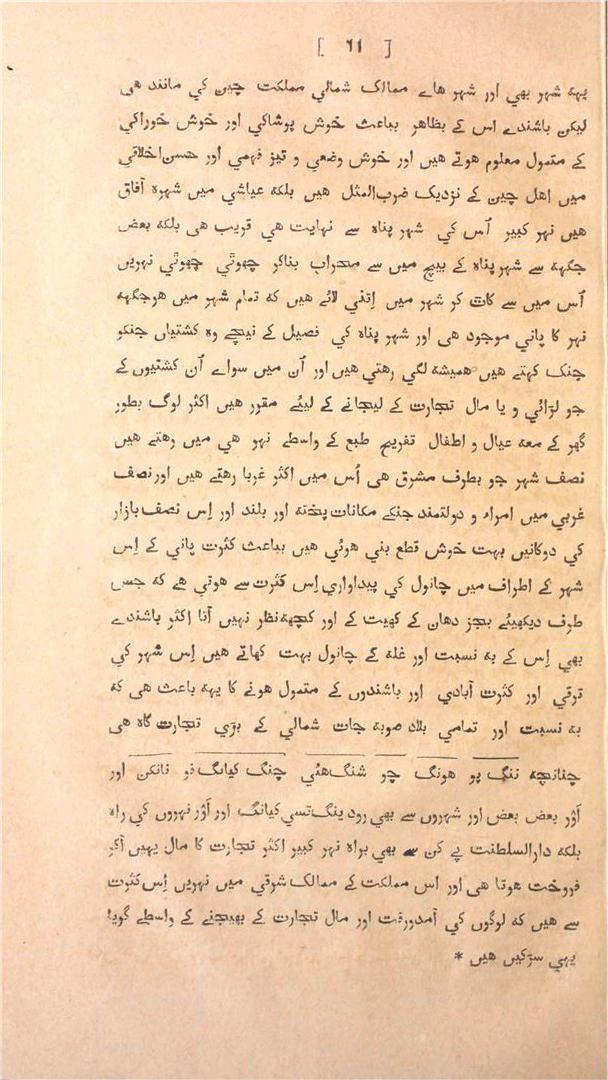 [ ٦١ ]
يهه شهر بهي اور شهر هاے ممالک شمالي مملکت چين کي مانند هی
ليکن باشندے اس کے بظاهر بباعث خوش پوشاکي اور خوش خوراکي
کے متمول معلوم هوتے هيں اور خوش وضعي و تيز فهمي اور حسن اخلاقي
ميں اهل چين کے نزديک ضرب‌المثل هيں بلکه عياشي ميں شهرۂ آفاق
هيں نهر کبير اُس کي شهر پناه سے نهايت هي قريب هی بلکه بعض
جگهه سے شهر پناه کے بيچ ميں سے محراب بناکر چهوٹي چهوٹي نهريں
اُس ميں سے کاٹ کر شهر ميں اِتني لائے هيں که تمام شهر ميں هرجگهه
نهر کا پاني موجود هی اور شهر پناه کي فصيل کے نيچے وه کشتياں جنکو
جنک کهتے هيں هميشه لگي رهتي هيں اور اُن ميں سواے اُن کشتيوں کے
جو لڑائي و يا مال تجارت کے ليجانے کے ليئے مقرر هيں اکثر لوگ بطور
گهر کے معه عيال و اطفال تفريح طبع کے واسطے نهر هي ميں رهتے هيں
نصف شهر جو بطرف مشرق هی اُس ميں اکثر غربا رهتے هيں اور نصف
غربي ميں امراء و دولتمند جنکے مکانات پخته اور بلند اور اِس نصف بازار
کي دوکانيں بهت خوش قطع بني هوئي هيں بباعث کثرت پاني کے اِس
شهر کے اطراف ميں چانول کي پيداواري اِس کثرت سے هوتي هے که جس
طرف ديکهيئے بجز دهان کے کهيت کے اور کچهه نظر نهيں آتا اکثر باشندے
بهي اِس کے به نسبت اور غله کے چانول بهت کهاتے هيں اِس شهر کي
ترقي اور کثرت آبادي اور باشندوں کے متمول هونے کا يهه باعث هی که
به نسبت اور تمامي بلاد صوبه جات شمالي کے بڑي تجارت گاه هی
چنانچه ننگ پو هونگ چو شنگ هئي چنگ کيانگ فو نانکن اور
اَوْر بعض بعض اور شهروں سے بهي رود ينگ تسي کيانگ اور اَوْر نهروں کي راه
بلکه دارالسلطنت پے کن سے بهي براه نهر کبير اکثر تجارت کا مال يهيں آکر
فروخت هوتا هی اور اس مملکت کے ممالک شرقي ميں نهريں اِس کثرت
سے هيں که لوگوں کي آمدورفت اور مال تجارت کے بهيجنے کے واسطے گويا
يهي سڑکيں هيں *